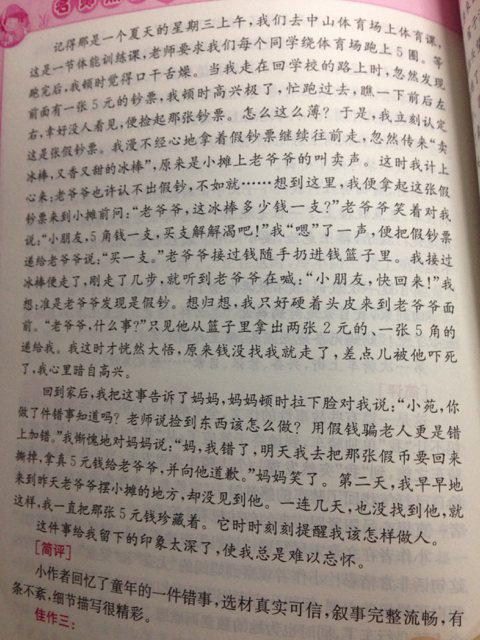 记得那是一个夏天的星期三上午，我们去中山体育场上体育课，
这是一节体能训练课，老师要求我们每个同学绕体育场跑上5圈。等
跑完后，我顿时觉得口干舌燥。当我走在回学校的路上时，忽然发现
前面有一张5元的钞票，我顿时高兴极了，忙跑过去，瞧一下前后左
右，幸好没人看见，便捡起那张钞票。怎么这么薄？于是，我立刻认定
这是张假钞票。我漫不经心地拿着假钞票继续往前走，忽然传来“卖
冰棒，又香又甜的冰棒”，原来是小摊上老爷爷的叫卖声。这时我计上
心来：老爷爷也许认不出假钞，不如就……想到这里，我便拿起这张假
钞票来到小摊前问：“老爷爷，这冰棒多少钱一支？”老爷爷笑着对我
说：“小朋友，5角钱一支，买支解解渴吧！”我“嗯”了一声，便把假钞票
递给老爷爷说：“买一支。”老爷爷接过钱随手扔进钱篮子里。我接过
冰棒便走了，刚走了几步，就听到老爷爷在喊：“小朋友，快回来！”我
想：准是老爷爷发现是假钞。想归想，我只好硬着头皮来到老爷爷面
前。“老爷爷，什么事？”只见他从篮子里拿出两张2元的、一张5角的
递给我。我这时才恍然大悟，原来钱没找我就走了，差点儿被他吓死
了，我心里暗自高兴。
回到家后，我把这事告诉了妈妈，妈妈顿时拉下脸对我说：“小苑，你
做了件错事知道吗？老师说捡到东西该怎么做？用假钱骗老人更是错
上加错。”我惭愧地对妈妈说：“妈，我错了，明天我去把那张假币要回来
撕掉，拿真5元钱给老爷爷，并向他道歉。”妈妈笑了。第二天，我早早地
来到昨天老爷爷摆小摊的地方，却没见到他。一连几天，也没找到他，就
这样，我一直把那张5元钱珍藏着。它时时刻刻提醒我该怎样做人。
这件事给我留下的印象太深了，使我总是难以忘怀。
[简评]
小作者回忆了童年的一件错事，选材真实可信，叙事完整流畅，有
条不紊，细节描写很精彩。
佳作三：